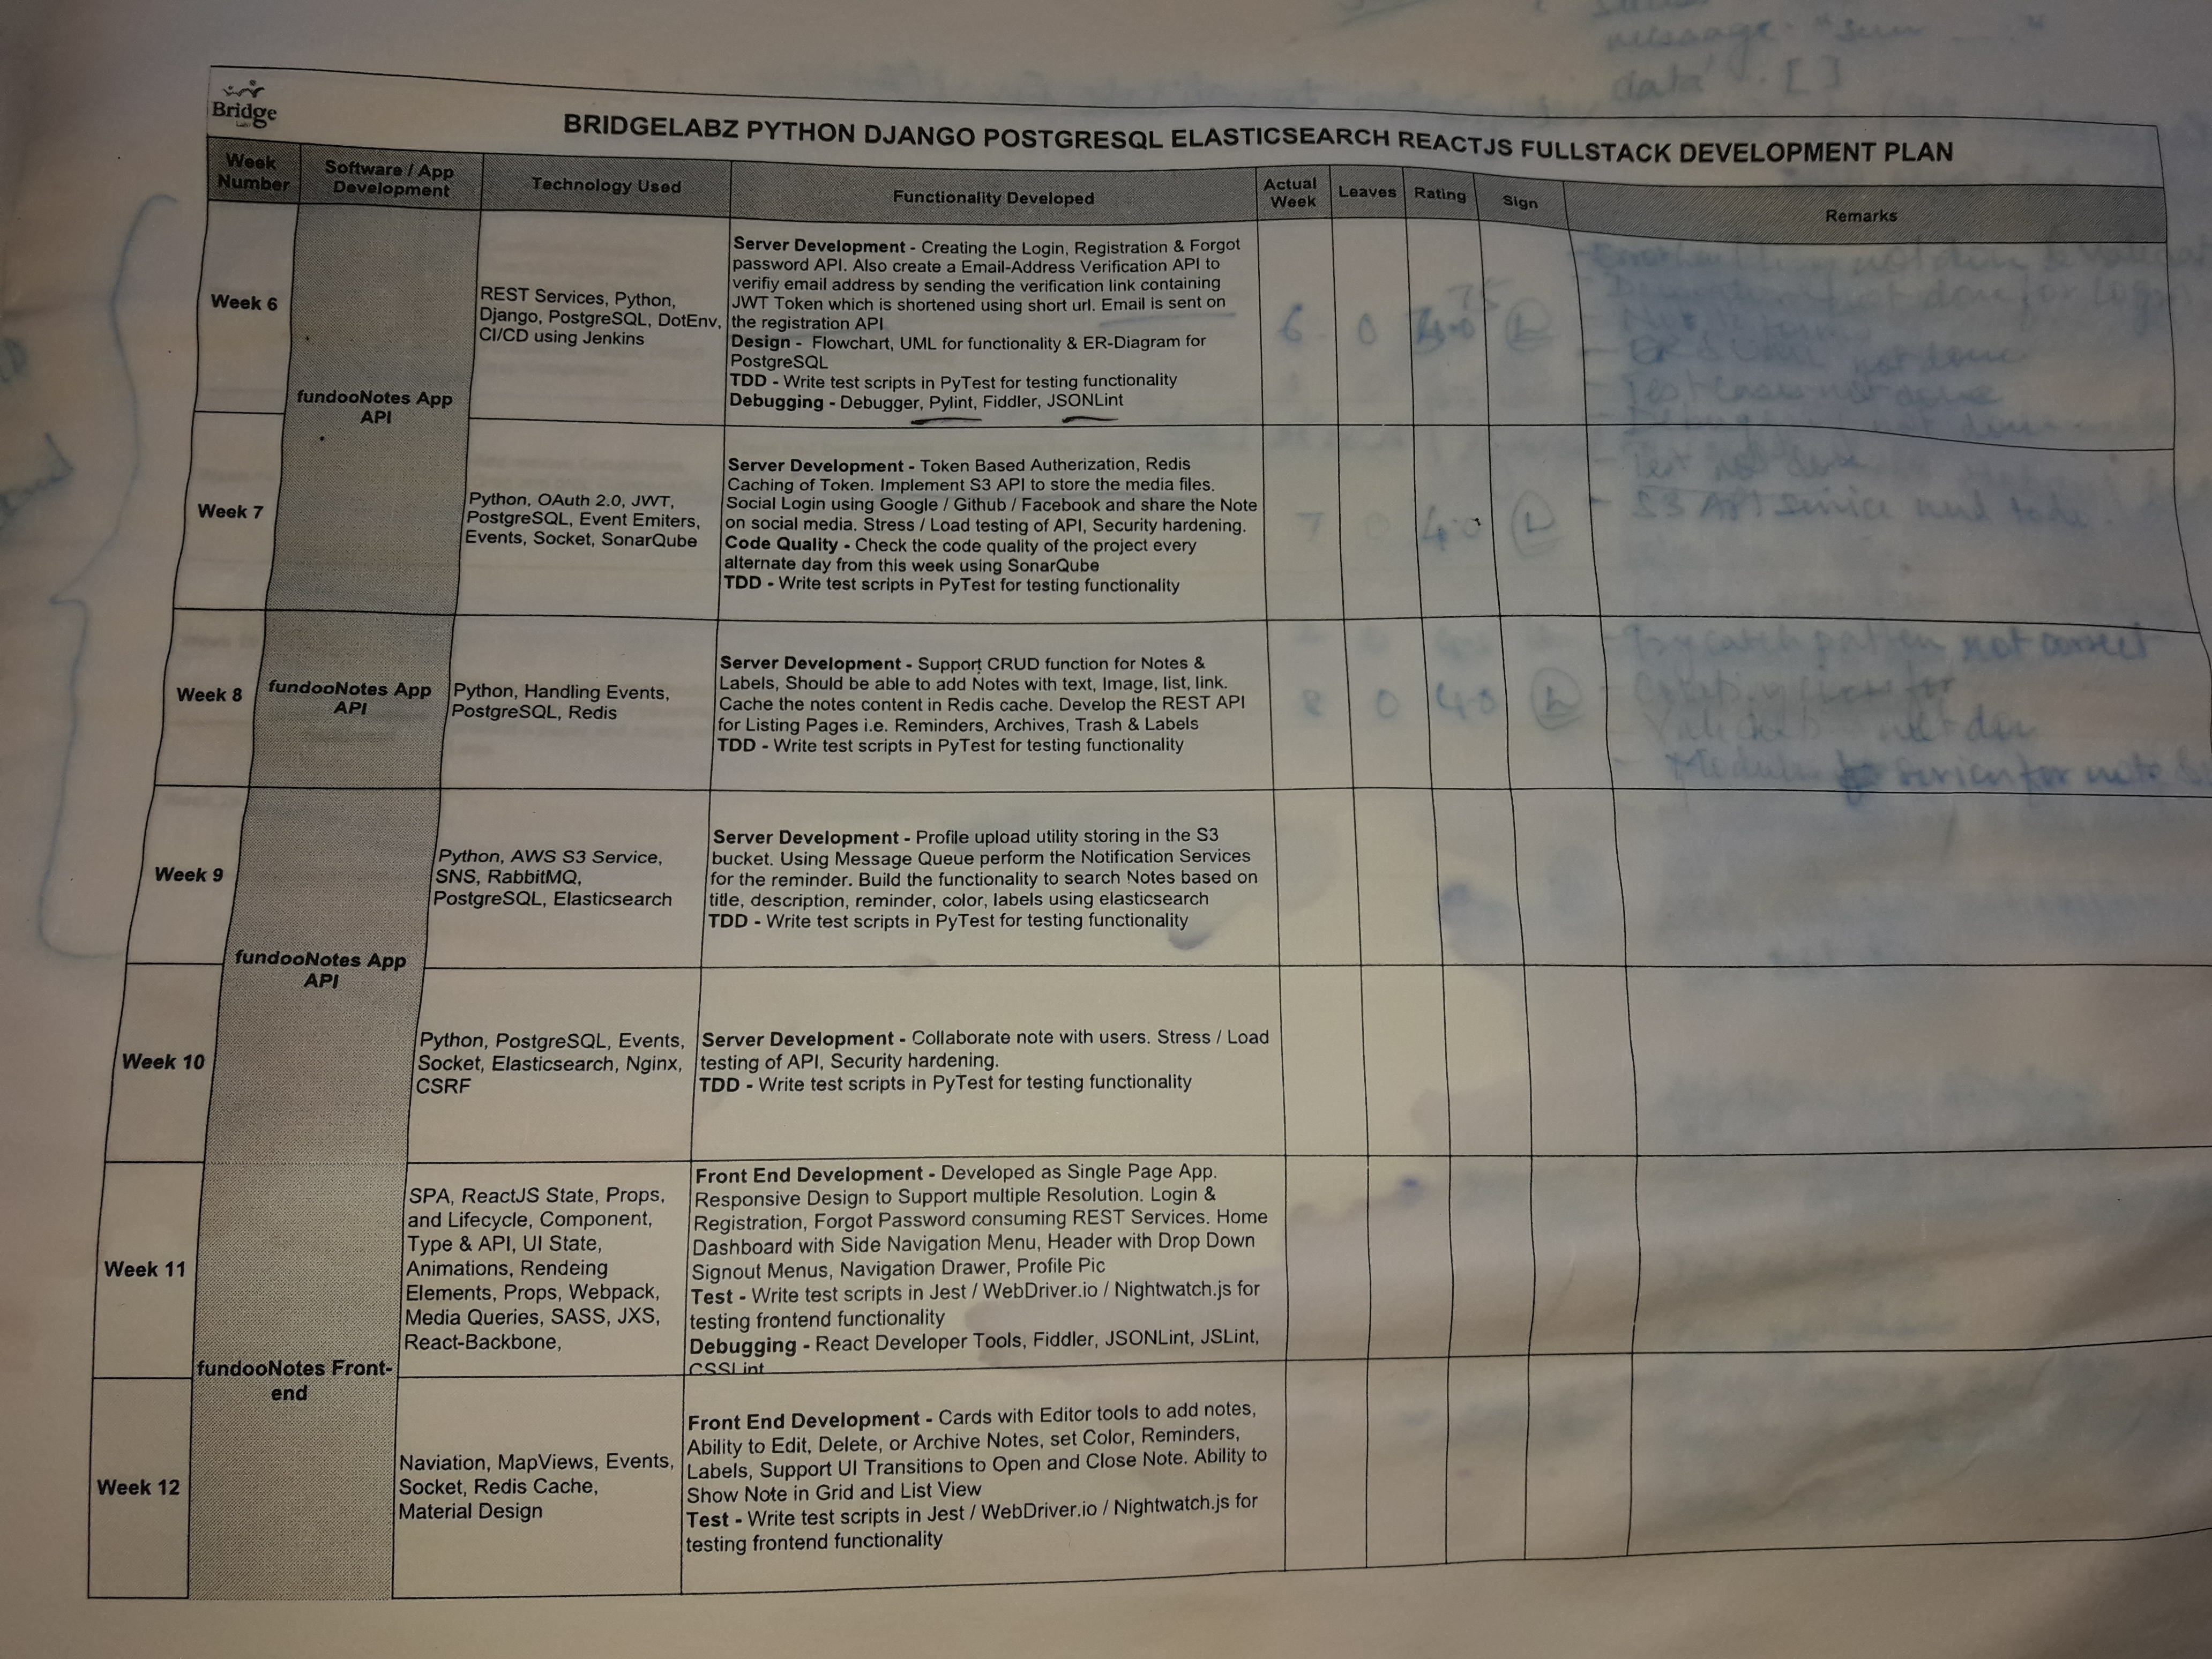 Bridge
BRIDGELABZ PYTHON DJANGO POSTGRESQL ELASTICSEARCH REACTJS FULLSTACK DEVELOPMENT PLAN
Week
Number
Software / App
Development
Technology Used
Functionality Developed
Actual
Week
Leaves
Rating
Sign
Remarks
Week 6
fundooNotes App
API
REST Services, Python,
Django, PostgreSQL, DotEnv,
CI/CD using Jenkins
Server Development - Creating the Login, Registration & Forgot
password API. Also create a Email-Address Verification API to
verifiy email address by sending the verification link containing
JWT Token which is shortened using short url. Email is sent on
the registration API
Design - Flowchart, UML for functionality & ER-Diagram for
PostgreSQL
TDD - Write test scripts in PyTest for testing functionality
Debugging - Debugger, Pylint, Fiddler, JSONLint
6
0
Week 7
Python, OAuth 2.0, JWT,
PostgreSQL, Event Emiters,
Events, Socket, SonarQube
Server Development - Token Based Autherization, Redis
Caching of Token. Implement S3 API to store the media files.
Social Login using Google / Github / Facebook and share the Note
on social media. Stress / Load testing of API, Security hardening.
Code Quality - Check the code quality of the project every
alternate day from this week using SonarQube
TDD - Write test scripts in PyTest for testing functionality
7
0
4.0
Week 8
fundooNotes App
API
Python, Handling Events,
PostgreSQL, Redis
Server Development - Support CRUD function for Notes &
Labels, Should be able to add Notes with text, Image, list, link.
Cache the notes content in Redis cache. Develop the REST API
for Listing Pages i.e. Reminders, Archives, Trash & Labels
TDD - Write test scripts in PyTest for testing functionality
8
0
4.0
Week 9
fundooNotes App
API
Python, AWS S3 Service,
SNS, RabbitMQ,
PostgreSQL, Elasticsearch
Server Development - Profile upload utility storing in the S3
bucket. Using Message Queue perform the Notification Services
for the reminder. Build the functionality to search Notes based on
title, description, reminder, color, labels using elasticsearch
TDD - Write test scripts in PyTest for testing functionality
Week 10
Python, PostgreSQL, Events,
Socket, Elasticsearch, Nginx,
CSRF
Server Development - Collaborate note with users. Stress / Load
testing of API, Security hardening.
TDD - Write test scripts in PyTest for testing functionality
Week 11
fundooNotes Front-
end
SPA, ReactJS State, Props,
and Lifecycle, Component,
Type & API, UI State,
Animations, Rendeing
Elements, Props, Webpack,
Media Queries, SASS, JXS,
React-Backbone,
Front End Development - Developed as Single Page App.
Responsive Design to Support multiple Resolution. Login &
Registration, Forgot Password consuming REST Services. Home
Dashboard with Side Navigation Menu, Header with Drop Down
Signout Menus, Navigation Drawer, Profile Pic
Test - Write test scripts in Jest / WebDriver.io / Nightwatch.js for
testing frontend functionality
Debugging - React Developer Tools, Fiddler, JSONLint, JSLint,
CSSLint
Week 12
Naviation, MapViews, Events,
Socket, Redis Cache,
Material Design
Front End Development - Cards with Editor tools to add notes,
Ability to Edit, Delete, or Archive Notes, set Color, Reminders,
Labels, Support UI Transitions to Open and Close Note. Ability to
Show Note in Grid and List View
Test - Write test scripts in Jest / WebDriver.io / Nightwatch.js for
testing frontend functionality